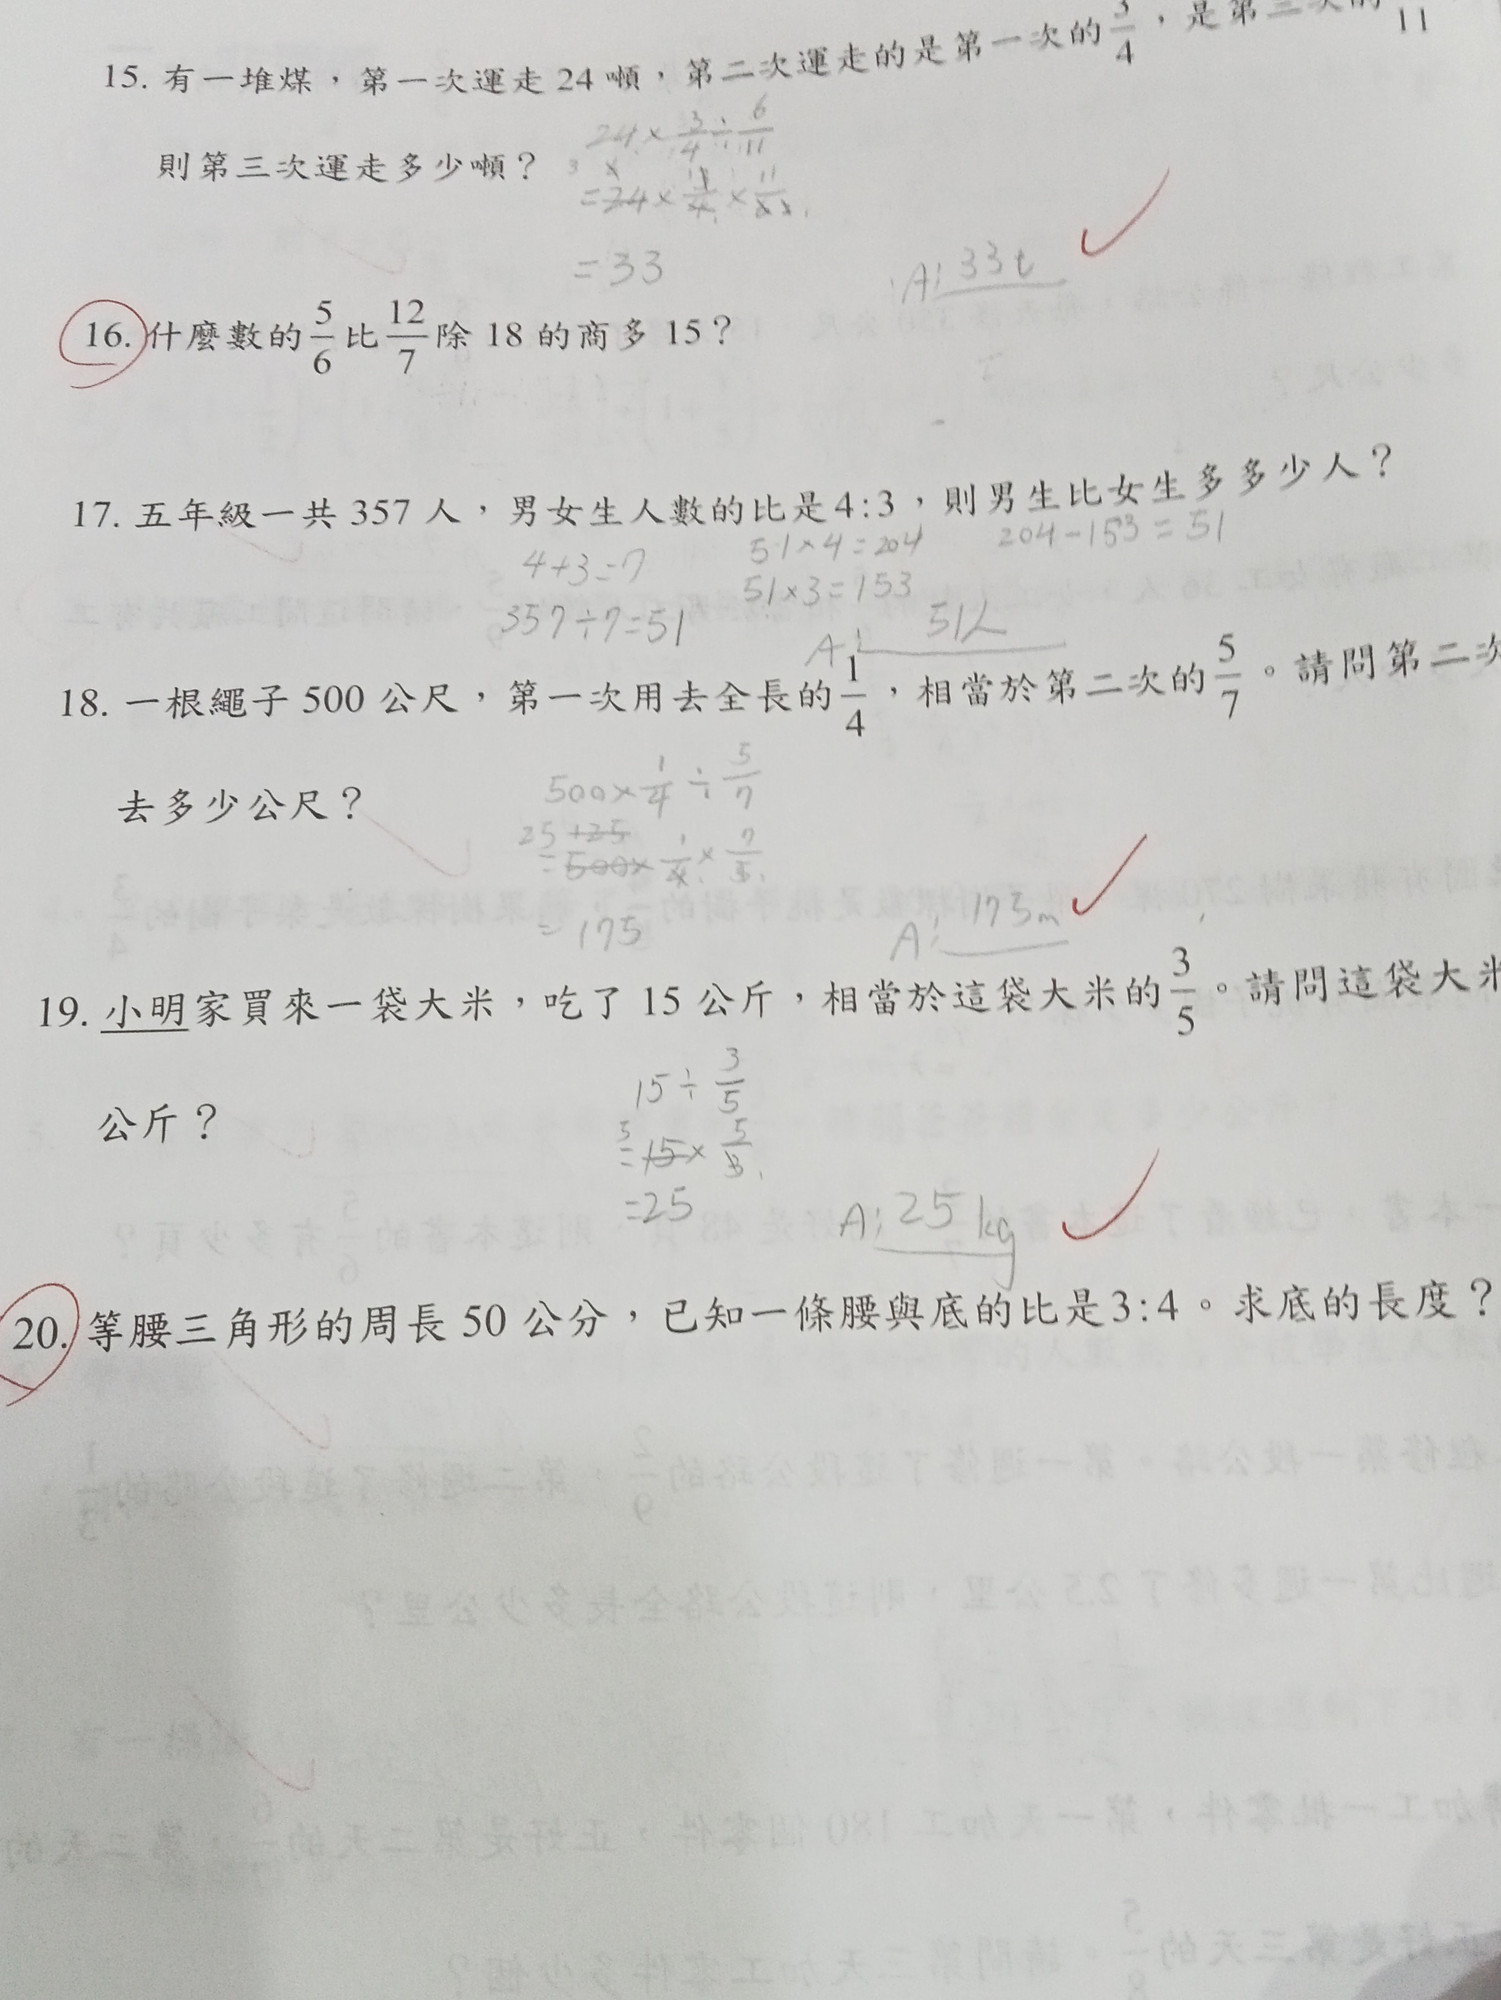 15. 有一堆煤，第一次運走 24 噸，第二次運走的是第一次的 3/4，是第三次的 /11
24 × 3/4 ÷ 6/11
則第三次運走多少噸？
= 24 × 3/4 × 11/6
= 33
A: 33t
16. 什麼數的 5/6 比 12/7 除 18 的商多 15？
17. 五年級一共 357 人，男女生人數的比是 4:3，則男生比女生多多少人？
4+3=7
51×4=204
204-153=51
357÷7=51
51×3=153
A: 51人
18. 一根繩子 500 公尺，第一次用去全長的 1/4，相當於第二次的 5/7。請問第二次
去多少公尺？
500 × 1/4 ÷ 5/7
25 125
= 500 × 1/4 × 7/5
= 175
A: 175m
19. 小明家買來一袋大米，吃了 15 公斤，相當於這袋大米的 3/5。請問這袋大米
公斤？
15 ÷ 3/5
5
= 15 × 5/3
=25
A: 25kg
20. 等腰三角形的周長 50 公分，已知一條腰與底的比是 3:4。求底的長度？